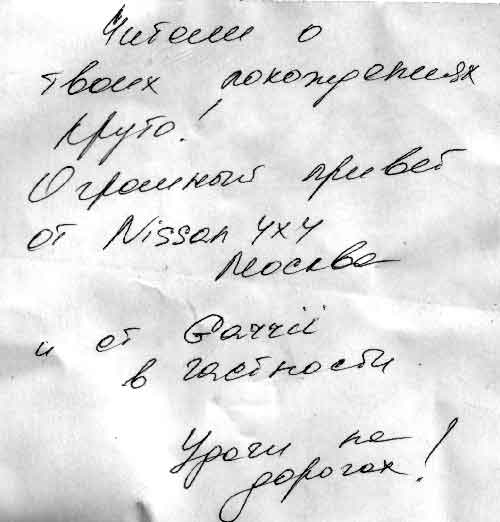 Читали о
твоих похождениях
круто!
Огромный привет
от Nissan 4x4
Москва
и от
в частности
Удачи на
дорогах!